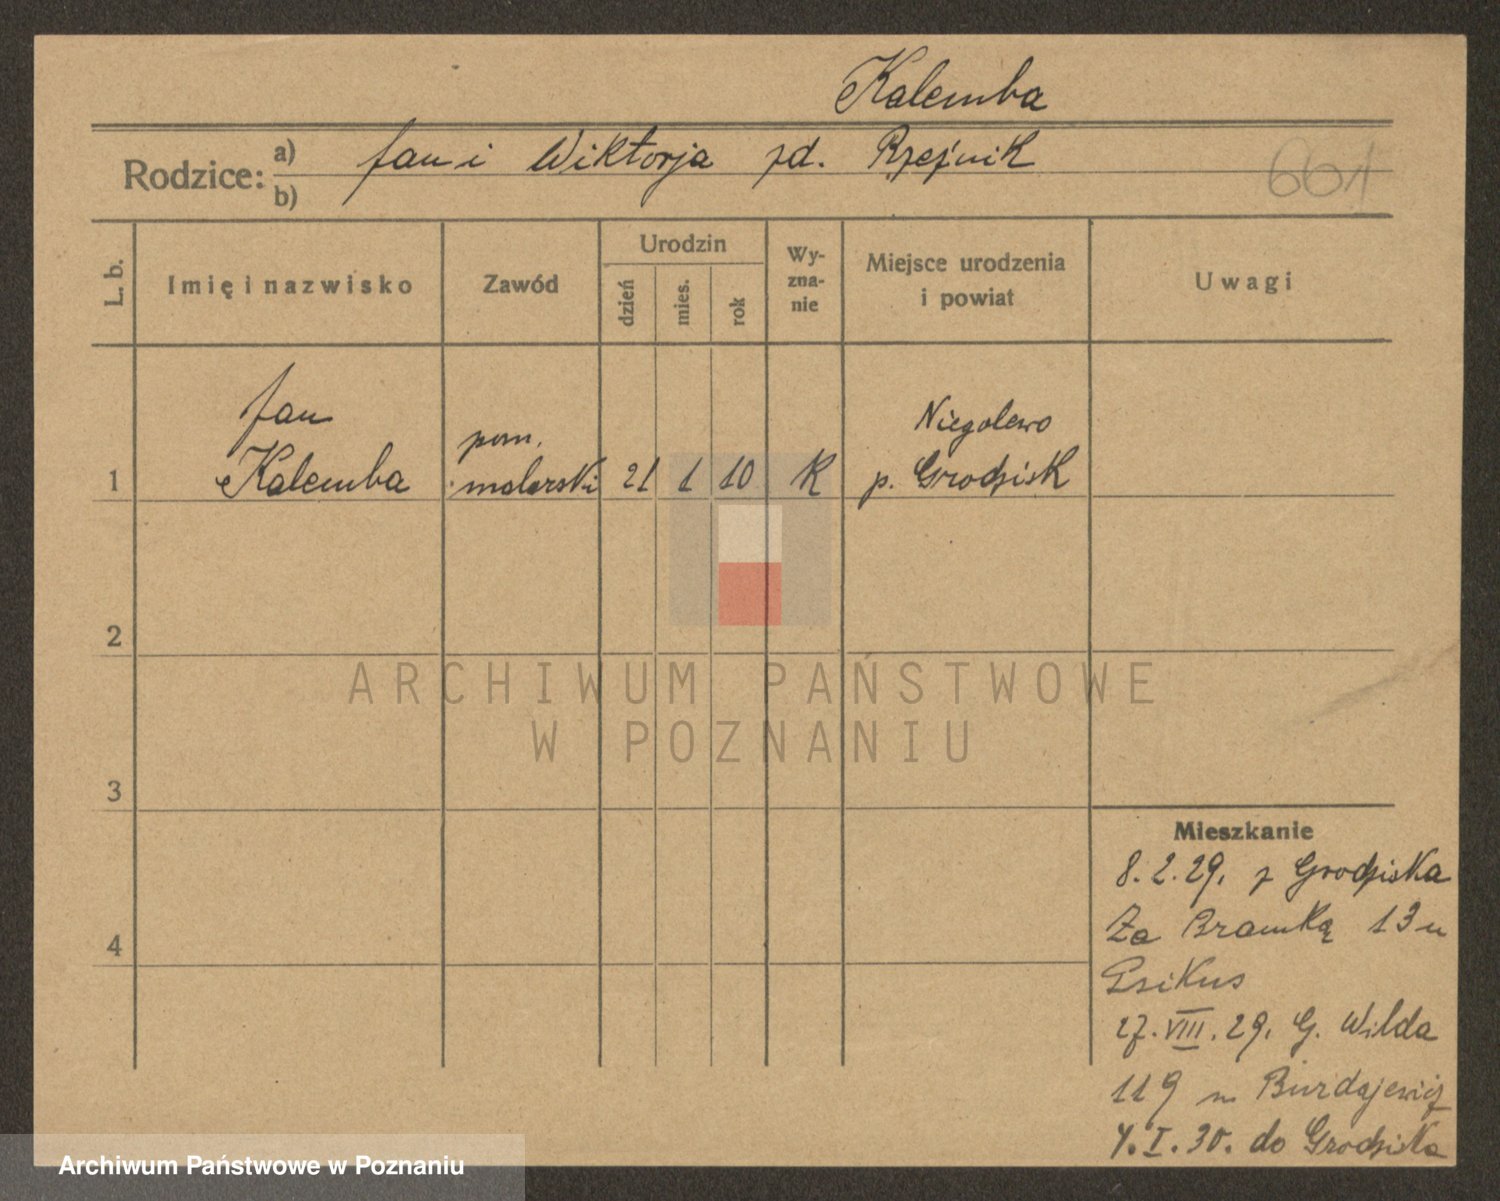 Kalemba
Rodzice: a) Jan i Wiktorja zd. Rzeźnik
b)
661
L. b.
Imię i nazwisko
Zawód
Urodzin
dzień
mies.
rok
Wy-
zna-
nie
Miejsce urodzenia
i powiat
Uwagi
1
Jan
Kalemba
pom.
malarski
21 1 10
K
Niegolewo
p. Grodzisk
2
3
4
ARCHIWUM PAŃSTWOWE
W POZNANIU
Mieszkanie
8.2.29. z Grodziska
Za Bramką 13 u
Psikus
27.VIII.29. G. Wilda
119 u Burdajewicz
4.I.30. do Grodziska
Archiwum Państwowe w Poznaniu